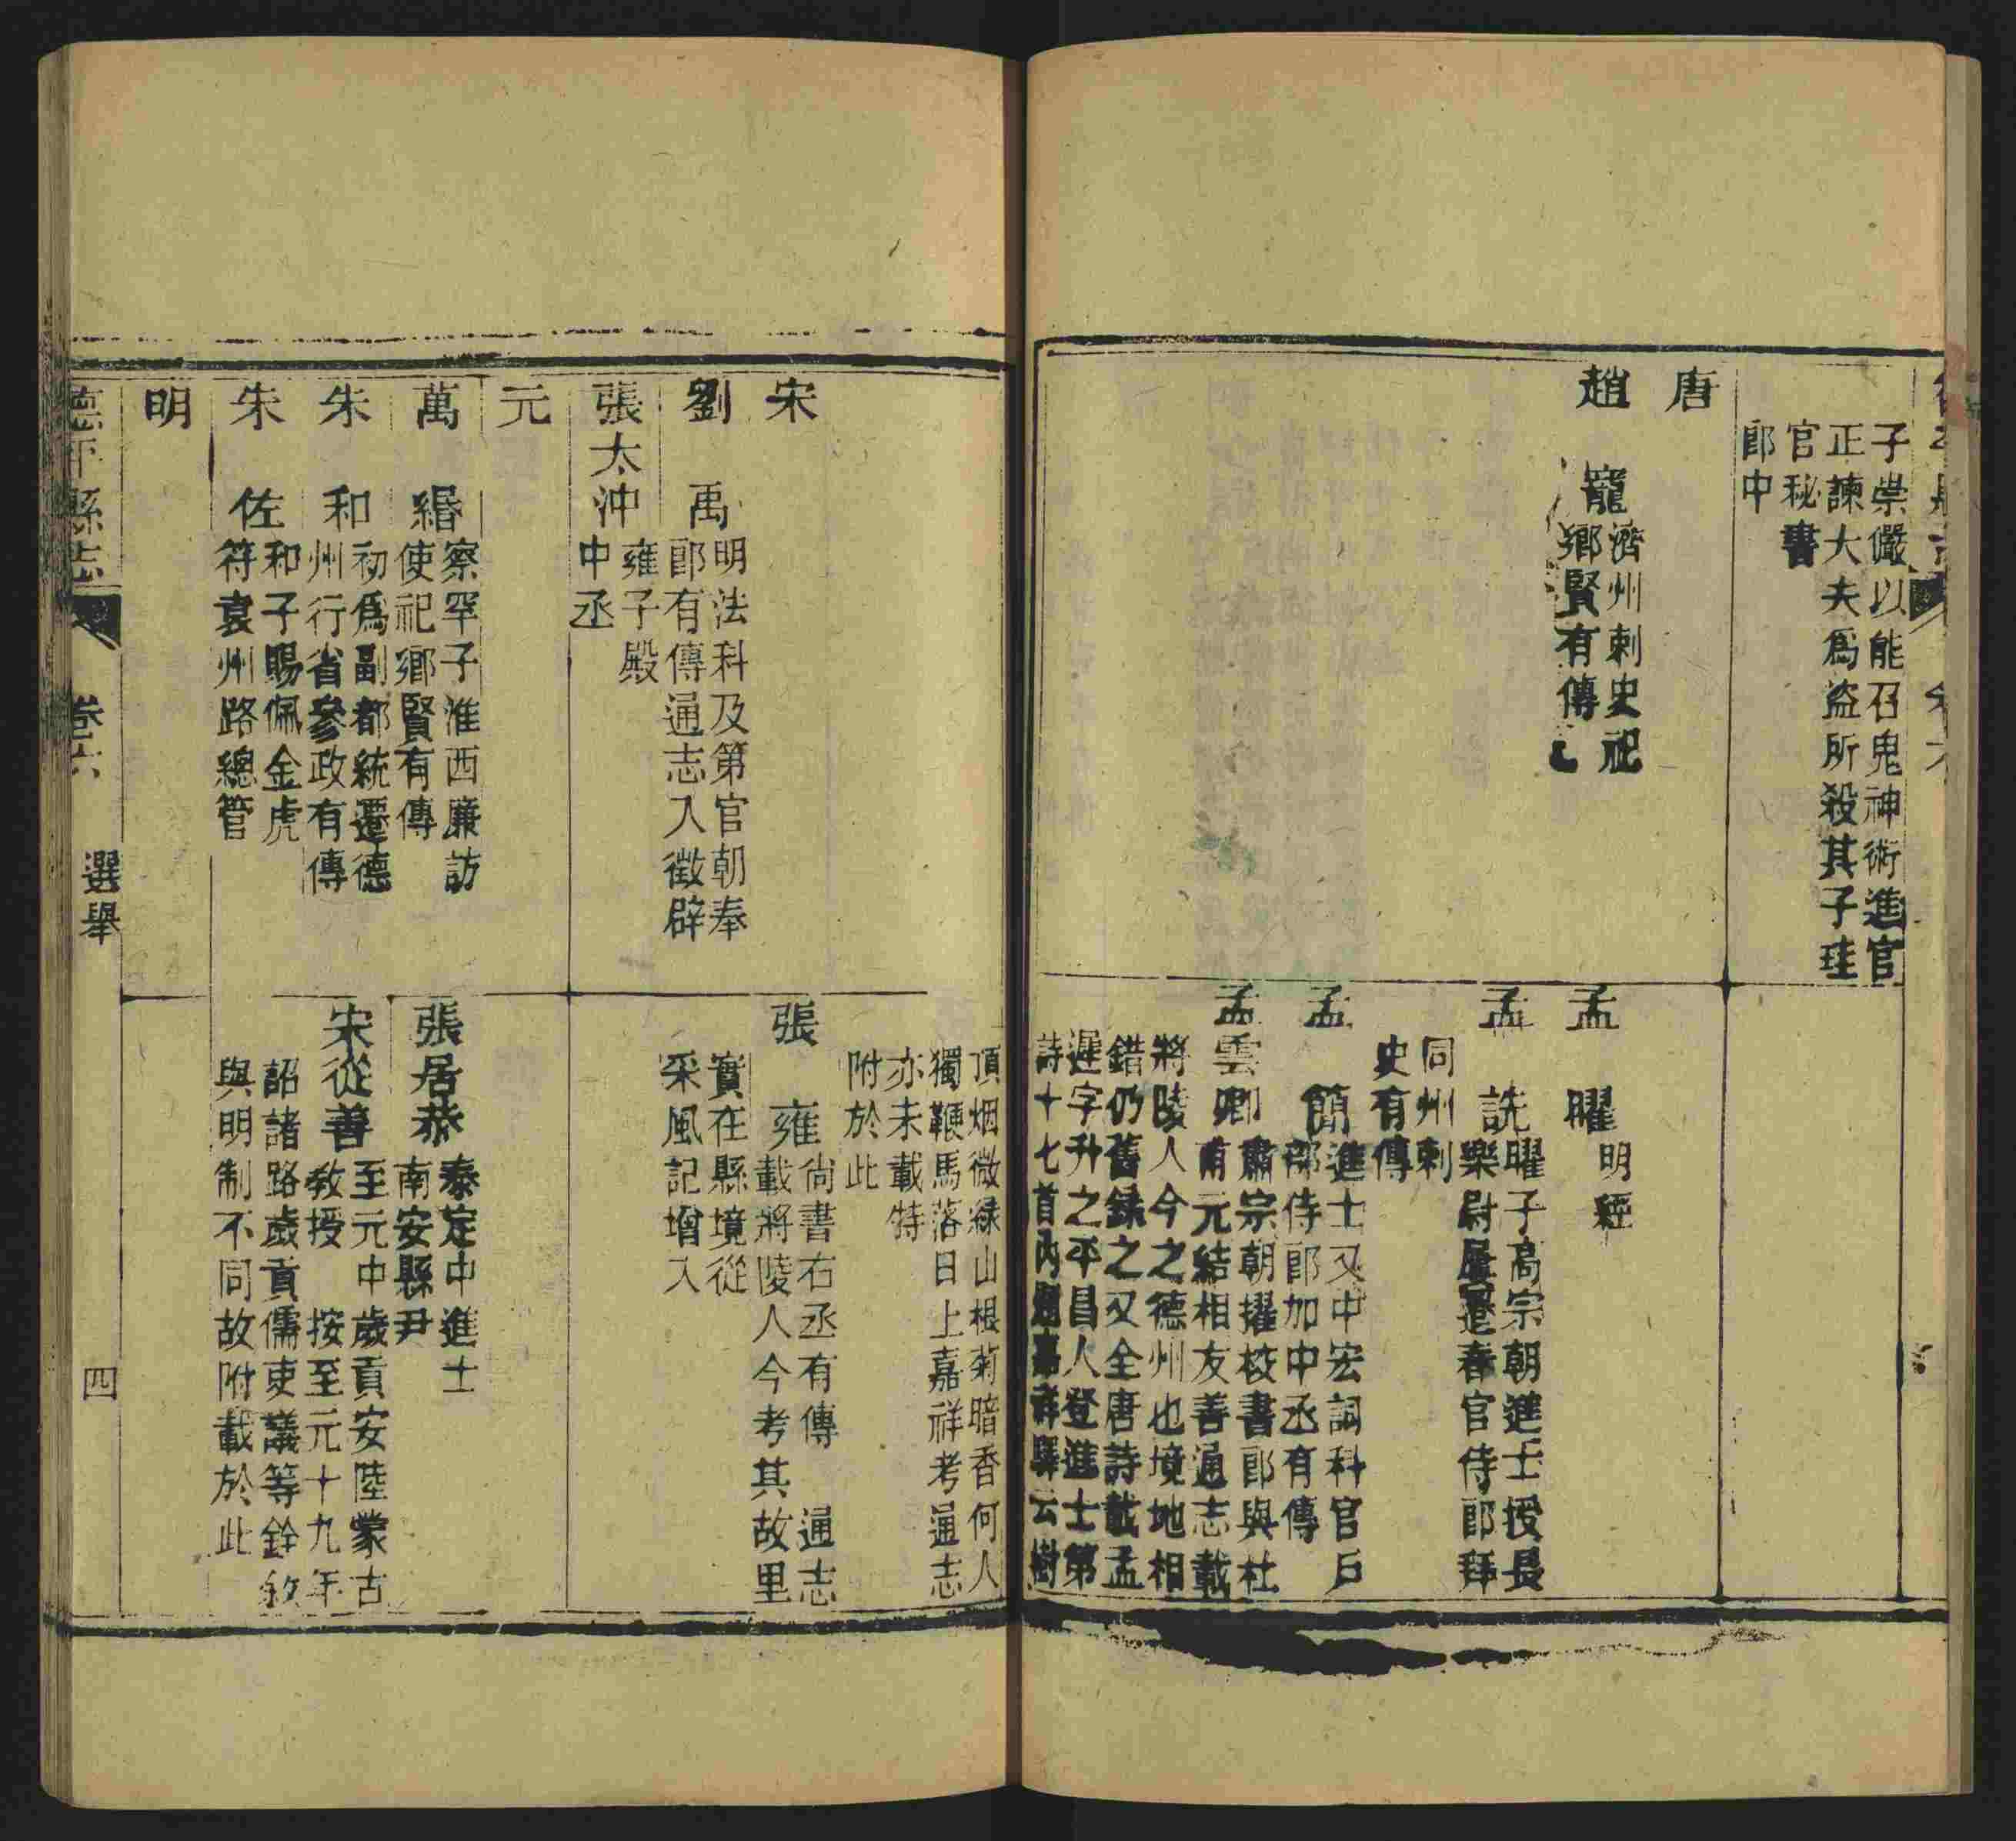 子崇儼以能召鬼神術進官
正諫大夫爲盗所殺其子珪
官秘書
郎中
唐
趙 寵 濟州刺史祀
鄉賢有傳
孟 曜 明經
孟 詵 曜子高宗朝進士授長
樂尉屢遷春官侍郎拜
同州刺
史有傳
孟 簡 進士又中宏詞科官戶
部侍郎加中丞有傳
孟雲卿 肅宗朝擢校書郎與杜
甫元結相友善通志載
將陵人今之德州也境地相
錯仍舊録之又全唐詩載孟
遲字升之平昌人登進士第
詩十七首內題嘉祥驛云樹
頂烟微緑山根菊暗香何人
獨鞭馬落日上嘉祥考通志
亦未載特
附於此
宋
劉 禹 明法科及第官朝奉
郎有傳通志入徵辟
張太沖 雍子殿
中丞
張 雍 尚書右丞有傳 通志
載將陵人今考其故里
實在縣境從
采風記增入
元
萬 緡 察罕子淮西廉訪
使祀鄉賢有傳
朱 和 初爲副都統遷德
州行省參政有傳
朱 佐 和子賜佩金虎
符袁州路總管
張居恭 泰定中進士
南安縣尹
宋從善 至元中歲貢安陸蒙古
教授 按至元十九年
詔諸路歲貢儒吏議等銓敘
與明制不同故附載於此
明
德平縣志 卷六 選舉 四